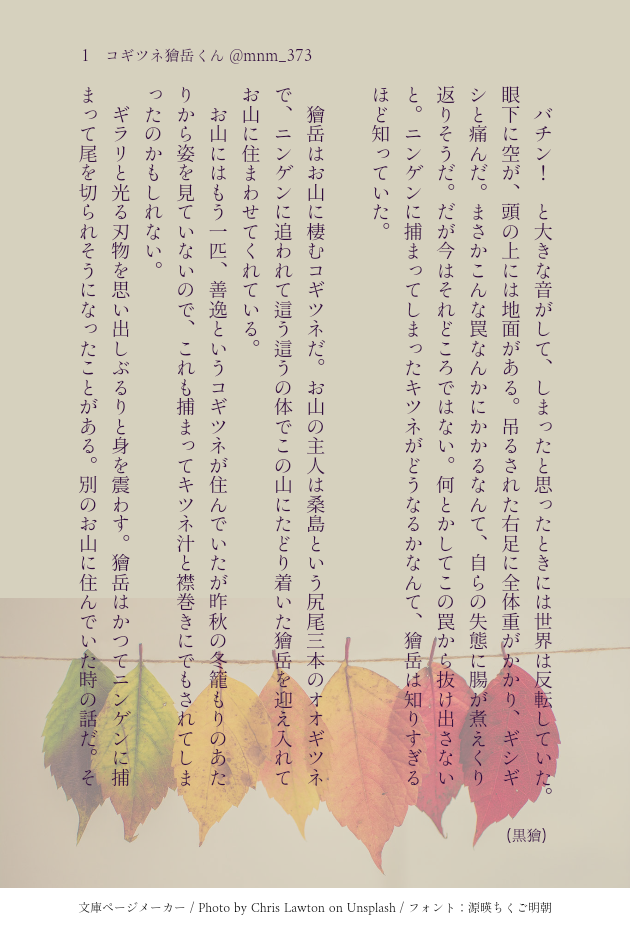 1 コギツネ獪岳くん @mnm_373
バチン！ と大きな音がして、しまったと思ったときには世界は反転していた。
眼下に空が、頭の上には地面がある。吊るされた右足に全体重がかかり、ギシギ
シと痛んだ。まさかこんな罠なんかにかかるなんて、自らの失態に腸が煮えくり
返りそうだ。だが今はそれどころではない。何とかしてこの罠から抜け出さない
と。ニンゲンに捕まってしまったキツネがどうなるかなんて、獪岳は知りすぎる
ほど知っていた。
獪岳はお山に棲むコギツネだ。お山の主人は桑島という尻尾三本のオオギツネ
で、ニンゲンに追われて這う這うの体でこの山にたどり着いた獪岳を迎え入れて
お山に住まわせてくれている。
お山にはもう一匹、善逸というコギツネが住んでいたが昨秋の冬籠もりのあた
りから姿を見ていないので、これも捕まってキツネ汁と襟巻きにでもされてしま
ったのかもしれない。
ギラリと光る刃物を思い出しぶるりと身を震わす。獪岳はかつてニンゲンに捕
まって尾を切られそうになったことがある。別のお山に住んでいた時の話だ。そ
(黒獪)
文庫ページメーカー / Photo by Chris Lawton on Unsplash / フォント：源暎ちくご明朝